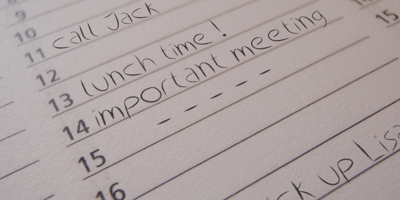 9
10
11 call Jack
12
13 lunch time!
14 important meeting
15 - - - - -
16
ck up Lisa
15